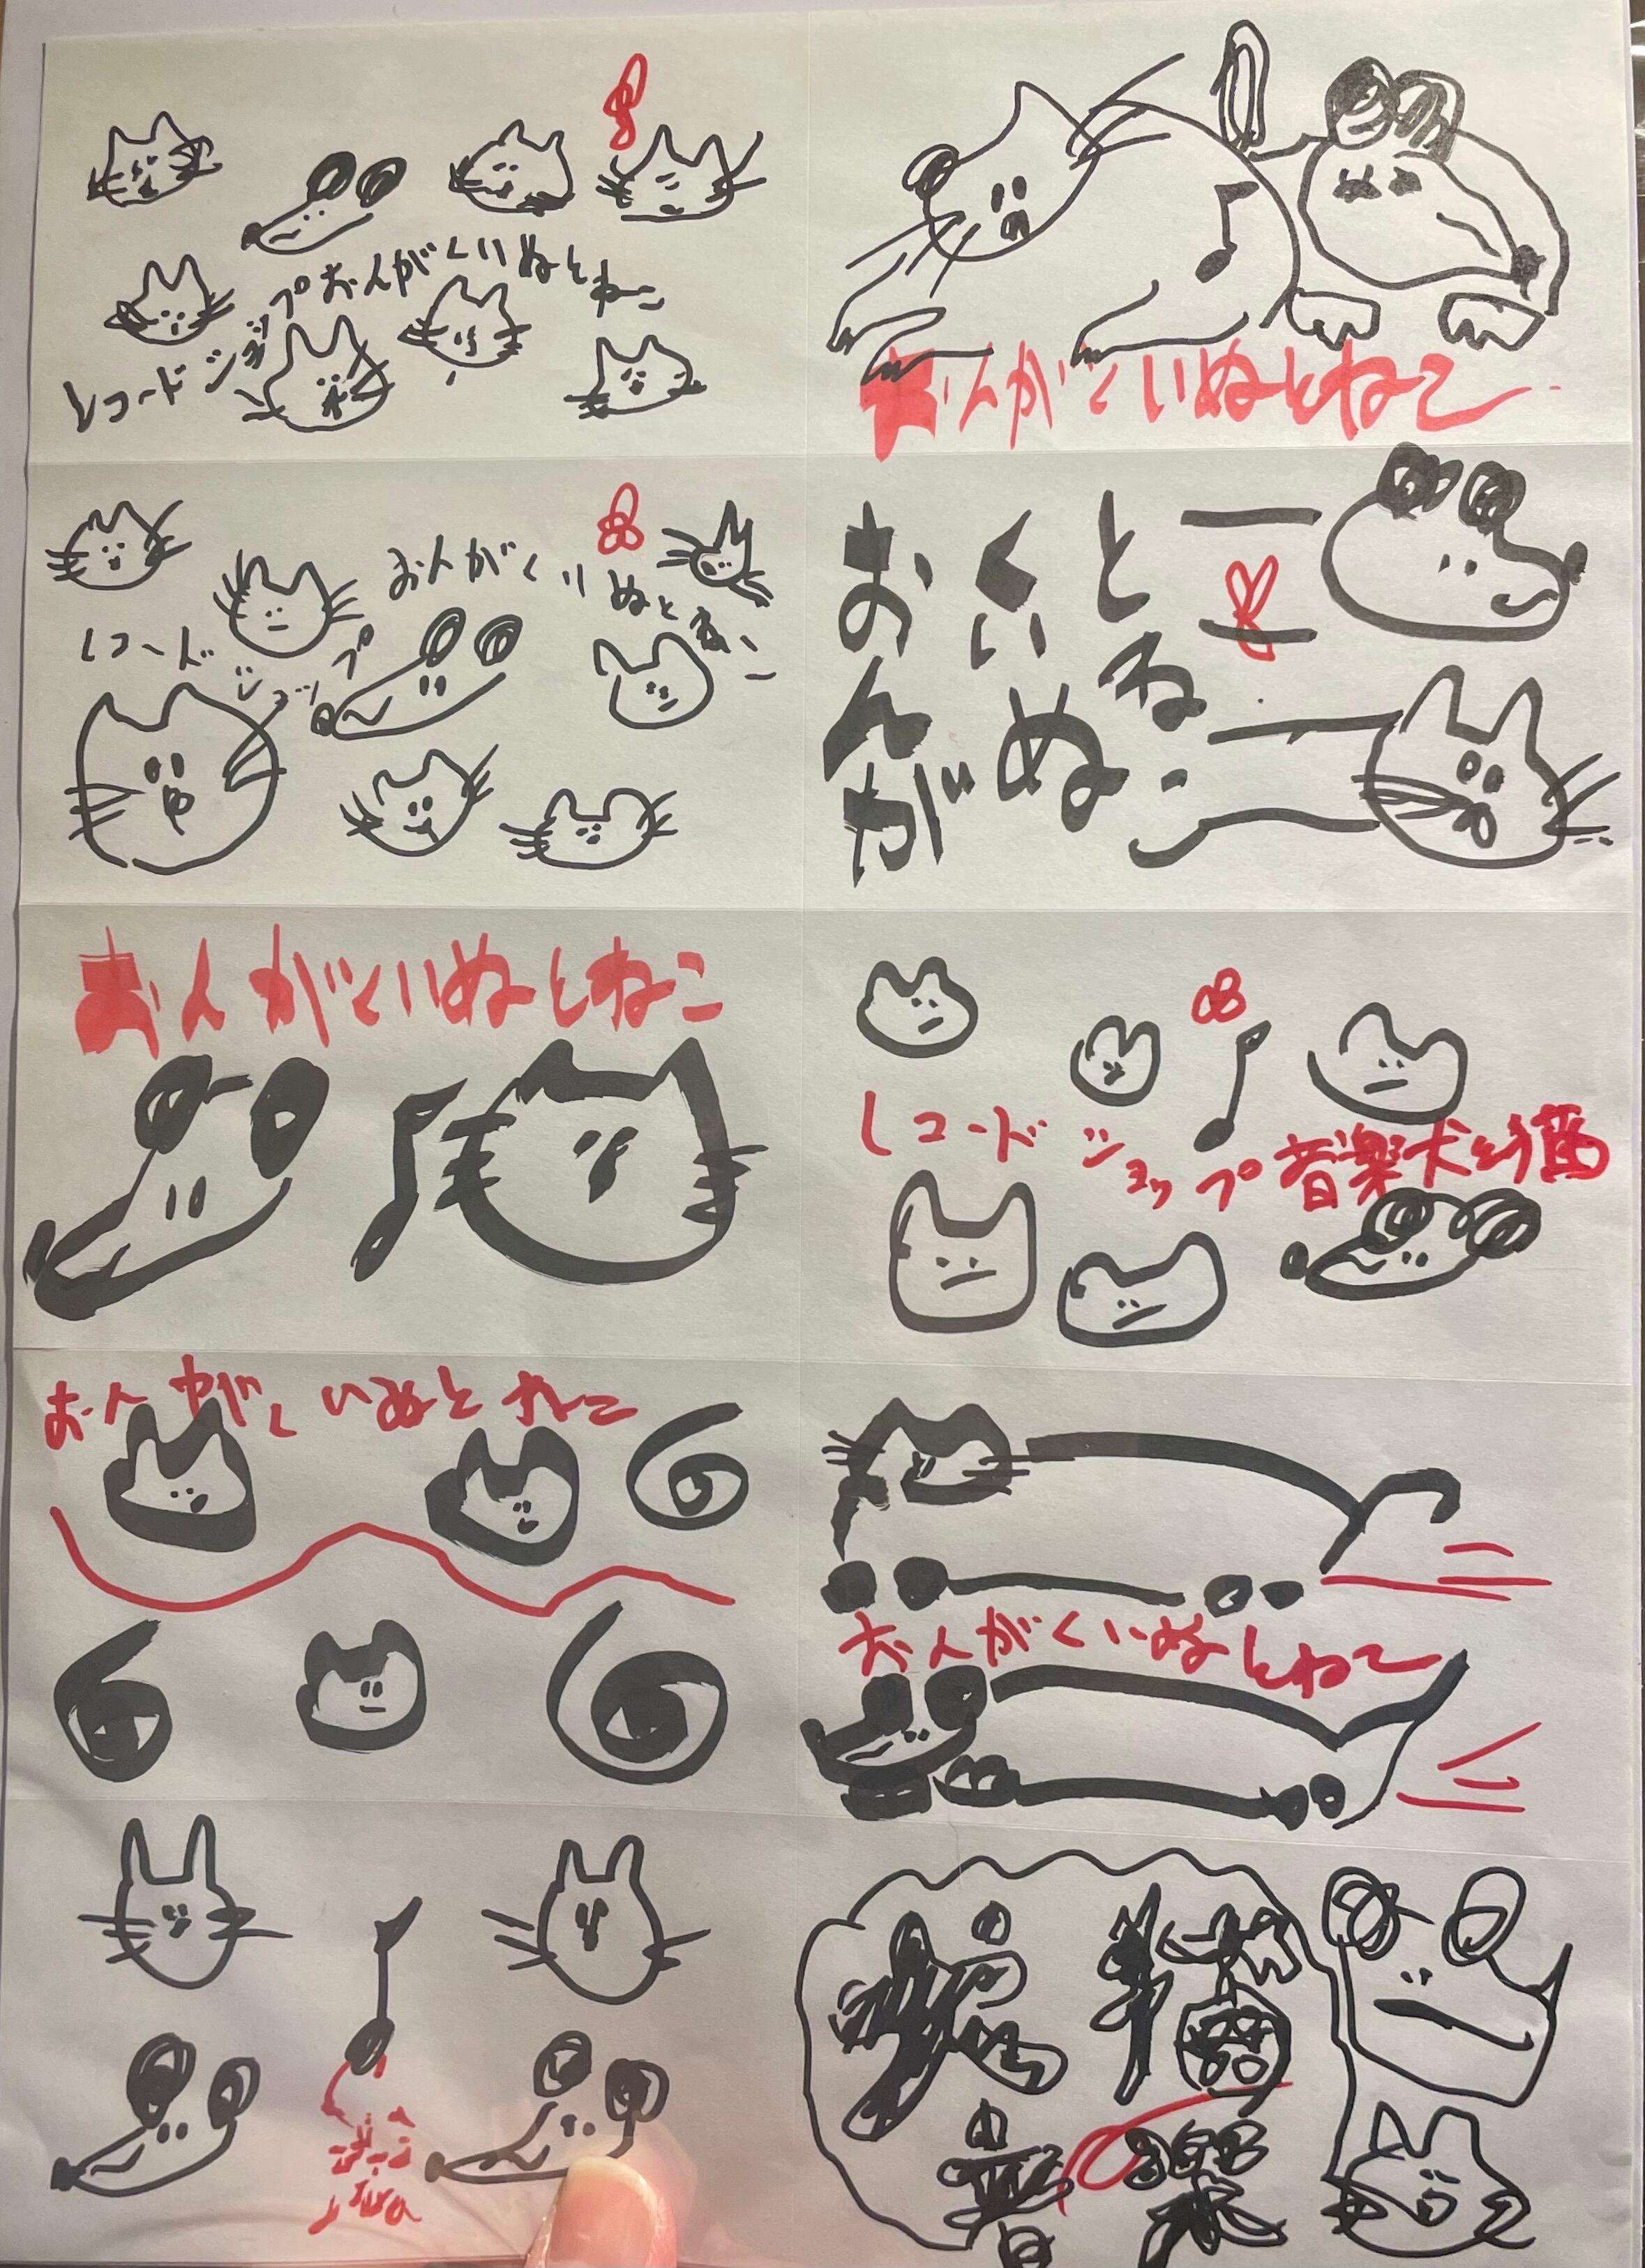 レコードショップおんがくいぬとねこ
おんがくいぬとねこ
レコードショップ
おんがくいぬとねこ
おんがくいぬとねこ
おんがくいぬとねこ
レコードショップ音楽犬と猫
おんがくいぬとねこ
おんがくいぬとねこ
猫
音楽